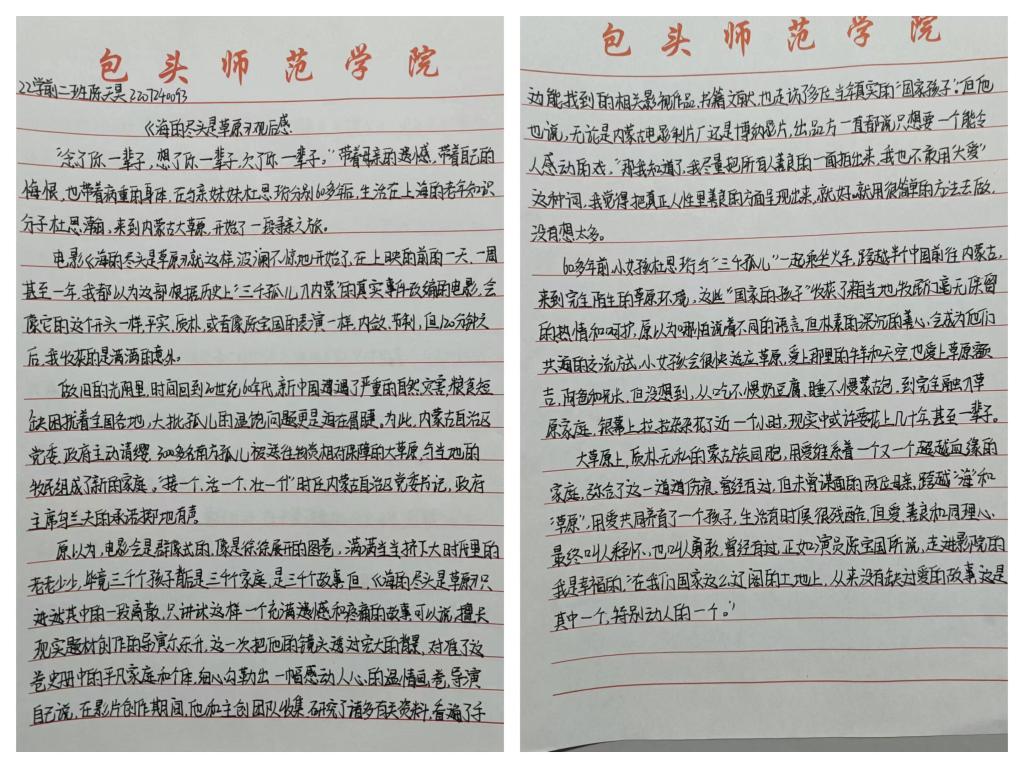 包头师范学院
22学前二班陈天昊 2207240093
《海的尽头是草原》观后感
"念了你一辈子,想了你一辈子,欠了你一辈子。"带着母亲的遗憾,带着自己的
悔恨,也带着病重的身体,在与亲妹妹杜思珩分别60多年后,生活在上海的老年知识
分子杜思瀚,来到内蒙古大草原,开始了一段寻亲之旅。
电影《海的尽头是草原》就这样,波澜不惊地开始了,在上映的前的一天、一周
甚至一年,我都以为这部根据历史上"三千孤儿入内蒙"的真实事件改编的电影,会
像它的这个开头一样,平实、质朴,或者像陈宝国的表演一样,内敛、节制,但120分钟之
后,我收获的是满满的意外。
做旧的光阴里,时间回到20世纪60年代,新中国遭遇了严重的自然灾害,粮食短
缺困扰着全国各地,大批孤儿的温饱问题更是迫在眉睫,为此,内蒙古自治区
党委、政府主动请缨,3000多名南方孤儿被送往物资相对保障的大草原,与当地的
牧民组成了新的家庭。"接一个、活一个、壮一个"时任内蒙古自治区党委书记、政府
主席乌兰夫的承诺掷地有声。
原以为,电影会是群像式的,像是徐徐展开的图卷,满满当当挤下大时代里的
老老少少,毕竟三千个孩子背后是三千个家庭,是三千个故事但,《海的尽头是草原》只
讲述其中的一段离散,只讲述这样一个充满遗憾和疼痛的故事可以说,擅长
现实题材创作的导演尔冬升,这一次把他的镜头透过宏大的背景,对准了这
卷史册中的平凡家庭和个体,细心勾勒出一幅感动人心的温情画卷,导演
自己说,在影片创作期间,他和主创团队收集、研究了诸多有关资料,看遍了手
包头师范学院
边能找到的相关影视作品、书籍文献,也走访了多位当年真实的"国家孩子"。但他
也说,无论是内蒙古电影制片厂还是博纳影片,出品方一直都说只想要一个能令
人感动的戏,"那我知道了,我尽量把所有人善良的一面拍出来,我也不敢用'大爱'
这种词,我觉得把真正人性里善良的方面呈现出来,就好。就用很简单的方法去做,
没有想太多。
60多年前,小女孩杜思珩与"三千孤儿"一起乘坐火车,跨越半个中国前往内蒙古,
来到完全陌生的草原环境,这些"国家的孩子"收获了相当地牧民们毫无保留
的热情和呵护,原以为,哪怕说着不同的语言,但朴素的深沉的善心,会成为他们
共通的交流方式,小女孩会很快适应草原,爱上那里的牛羊和天空,也爱上草原额
吉,阿爸和兄长,但没想到,从吃不惯奶豆腐,睡不惯蒙古包,到完全融入草
原家庭,银幕上拉拉杂杂花了近一个小时,现实中或许要花上几十年,甚至一辈子。
大草原上,质朴无私的蒙古族同胞,用爱维系着一个又一个超越血缘的
家庭,弥合了这一道道伤痕,曾经有过,但未曾谋面的两位母亲,跨越"海"和
"草原",用爱共同养育了一个孩子,生活有时候很残酷,但爱、善良和同理心,
最终叫人释怀,也叫人勇敢,曾经有过,正如演员陈宝国所说,走进影院的
我是幸福的,"在我们国家这么辽阔的土地上,从来没有缺过爱的故事,这是
其中一个,特别动人的一个。"